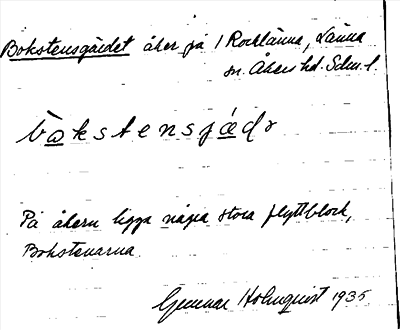 Bokstensgärdet åker på 1 Rocklänna, Länna
sn. Åkers hd. Sdm. l.
bakstensjädә
På åkern ligga några stora flyttblock,
Bokstenarna.
Gunnar Holmquist 1935